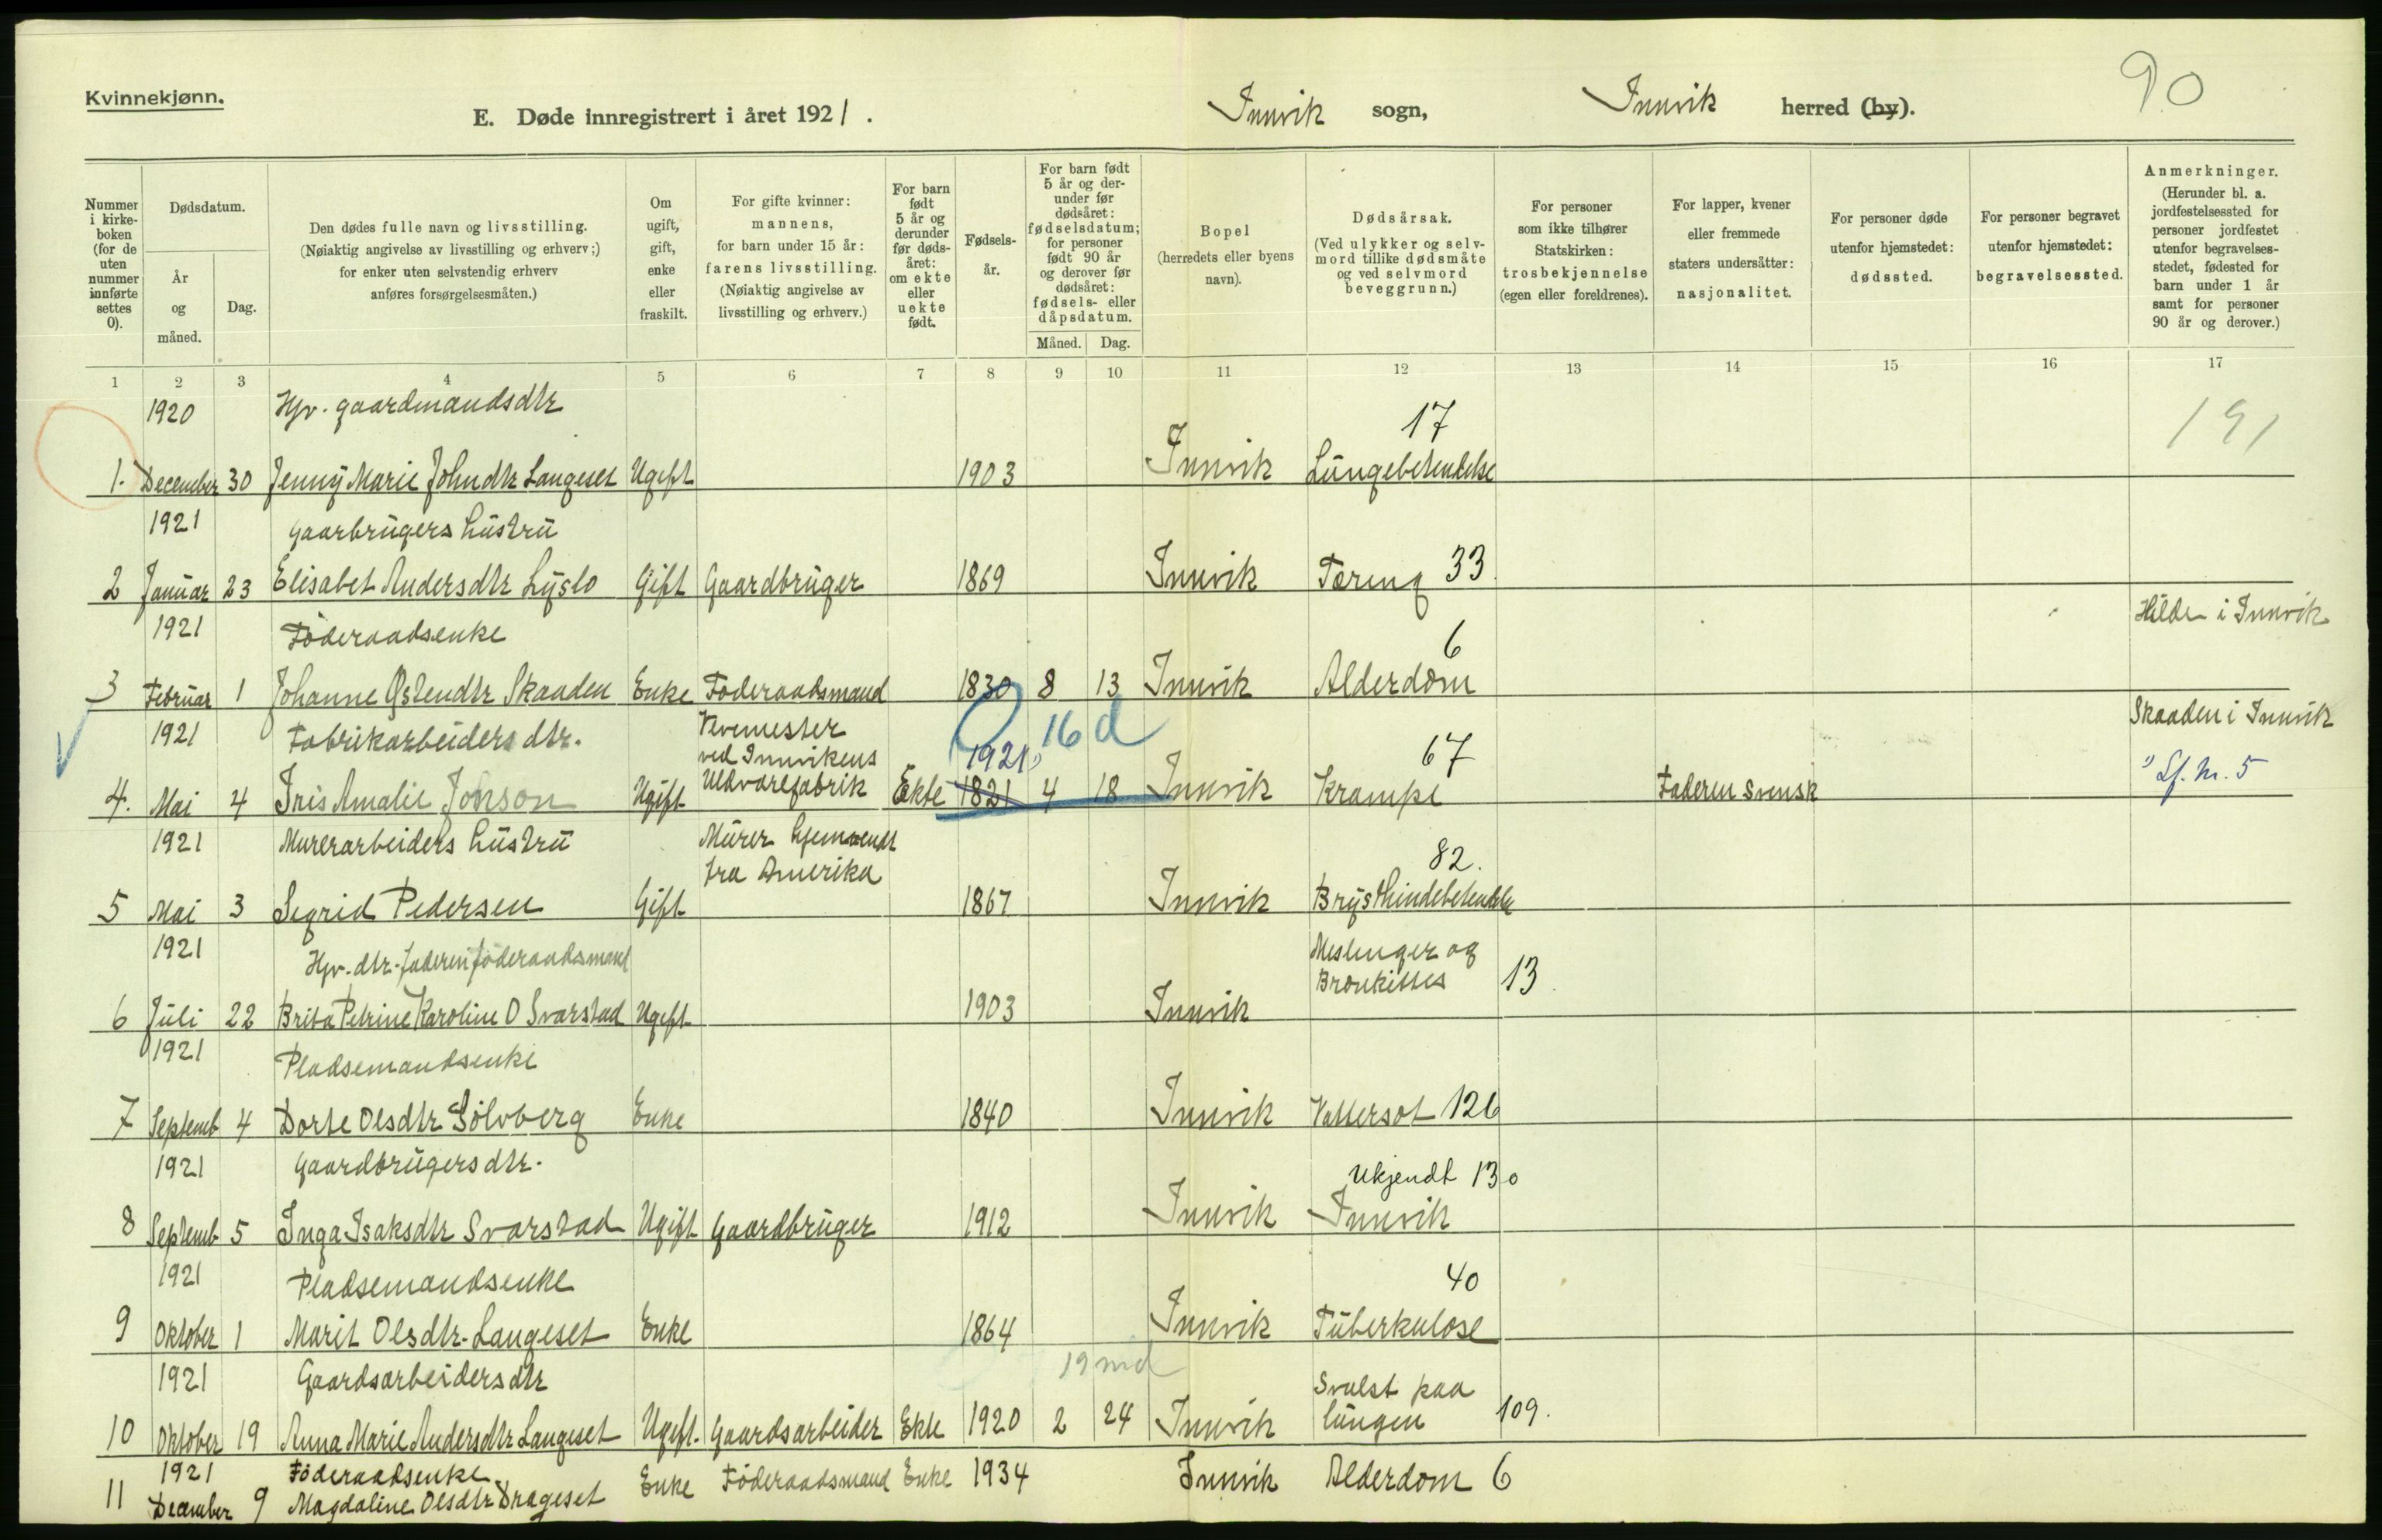 Kvinnekjønn.
E. Døde innregistrert i året 1921.
Innvik sogn,
Innvik herred (by).
90
Nummer i kirke-boken (for de uten nummer innførte settes 0).
Dødsdatum.
År og måned.
Dag.
Den dødes fulle navn og livsstilling.
(Nøiaktig angivelse av livsstilling og erhverv;)
for enker uten selvstendig erhverv
anføres forsørgelsesmåten.)
Om ugift, gift, enke eller fraskilt.
For gifte kvinner:
mannens,
for barn under 15 år:
farens livsstilling.
(Nøiaktig angivelse av
livsstilling og erhverv.)
For barn født 5 år og derunder før døds-året: om ekte eller uekte født.
Fødsels-år.
For barn født 5 år og der-under før dødsåret: fødselsdatum; for personer født 90 år og derover før dødsåret: fødsels- eller dåpsdatum.
Måned.
Dag.
Bopel
(herredets eller byens
navn).
Dødsårsak.
(Ved ulykker og selv-
mord tillike dødsmåte
og ved selvmord
beveggrunn.)
For personer
som ikke tilhører
Statskirken:
trosbekjennelse
(egen eller foreldrenes).
For lapper, kvener
eller fremmede
staters undersåtter:
nasjonalitet.
For personer døde
utenfor hjemstedet:
dødssted.
For personer begravet
utenfor hjemstedet:
begravelsessted.
Anmerkninger.
(Herunder bl. a.
jordfestelsessted for
personer jordfestet
utenfor begravelses-
stedet, fødested for
barn under 1 år
samt for personer
90 år og derover.)
1 2 3 4 5 6 7 8 9 10 11 12 13 14 15 16 17
1920 Hjv. gaardmandsdtr 17 191
1. December 30 Jenny Marie Johndtr Langeset Ugift 1903 Innvik Lungebetendelse
1921 Gaarbrugers hustru
2 Januar 23 Elisabet Andersdtr Lyslo Gift Gaardbruger 1869 Innvik Tæring 33
1921 Föderaadsenke 6 Hilde i Innvik
3 Februar 1 Johanne Østendtr Skaaden Enke Föderaadsmand 1830 8 13 Innvik Alderdom
1921 Fabrikarbeiders dtr. Vevmester ved Innvikens 1921) 16 d 67 Skaaden i Innvik
4. Mai 4 Iris Amalie Jonson Ugift Uldvarefabrik Ekte 1821 4 18 Innvik Krampe Faderen Svensk
) Lf. nr. 5
1921 Murerarbeiders hustru Murer hjemvendt fra Amerika 82.
5 Mai 3 Sigrid Pedersen Gift 1867 Innvik Brysthindebetendelse
1921 Hjv. dtr. faderen föderaadsmand Meslinger og Bronkittes 13
6 Juli 22 Brita Petrine Karoline O Svarstad Ugift 1903 Innvik
1921 Pladsemandsenke
7 Septemb 4 Dorte Olsdtr Sölvberg Enke 1840 Innvik Vattersot 126
1921 Gaardbrugers dtr. Ukjendt 130
8 Septemb 5 Inga Isaksdtr Svarstad Ugift Gaardbruger 1912 Innvik Innvik
1921 Pladsemandsenke 40
9 Oktober 1 Marit Olsdtr. Langeset Enke 1864 Innvik Tuberkulose
1921 Gaardsarbeiders dtr 19 md Svulst paa
10 Oktober 19 Anna Marie Andersdtr Langeset Ugift. Gaardsarbeider Ekte 1920 2 24 Innvik lungen 109.
1921 Föderaadsenke
11 December 9 Magdaline Olsdtr Drageset Enke Föderaadsmand Enke 1934 Innvik Alderdom 6